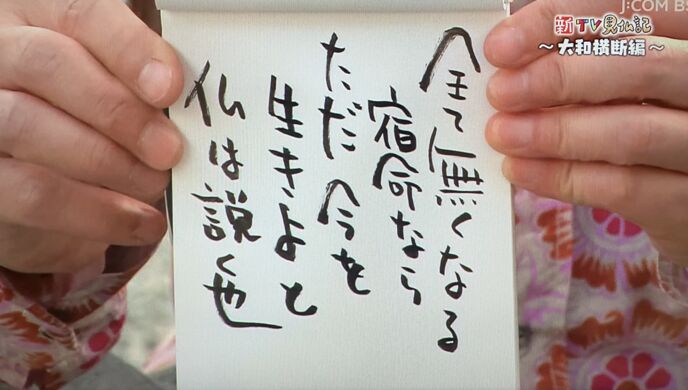 J:COM BS
新TV見仏記
~大和横断編~
全て無くなる
宿命なら
ただ今を
生きよと
仏は説く也